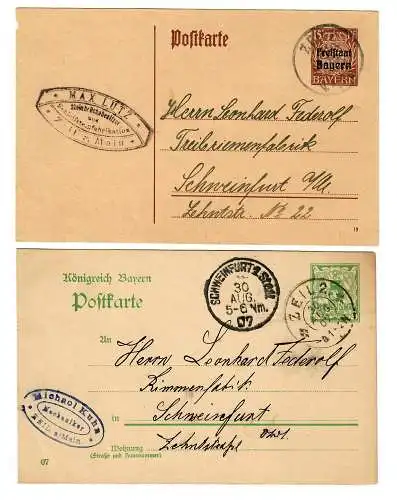 Postkarte
15 PF
Freistaat
Bayern
BAYERN
MAX LUTZ
Steinbruchbesitzer
und
Zeil a. Main
Herrn Leonhard Federolf
Treibriemenfabrik
Schweinfurt a/M.
Zehntstr. No 22
Königreich Bayern
Postkarte
SCHWEINFURT 2. STADT.
30
AUG.
5-6 Nm.
07
ZEIL
An
Herrn Leonhard Federolf
Riemenfabrik
in Schweinfurt
Michael Kuhn
Mechaniker
ZEIL a/Main
Wohnung
(Straße und Hausnummer)
07